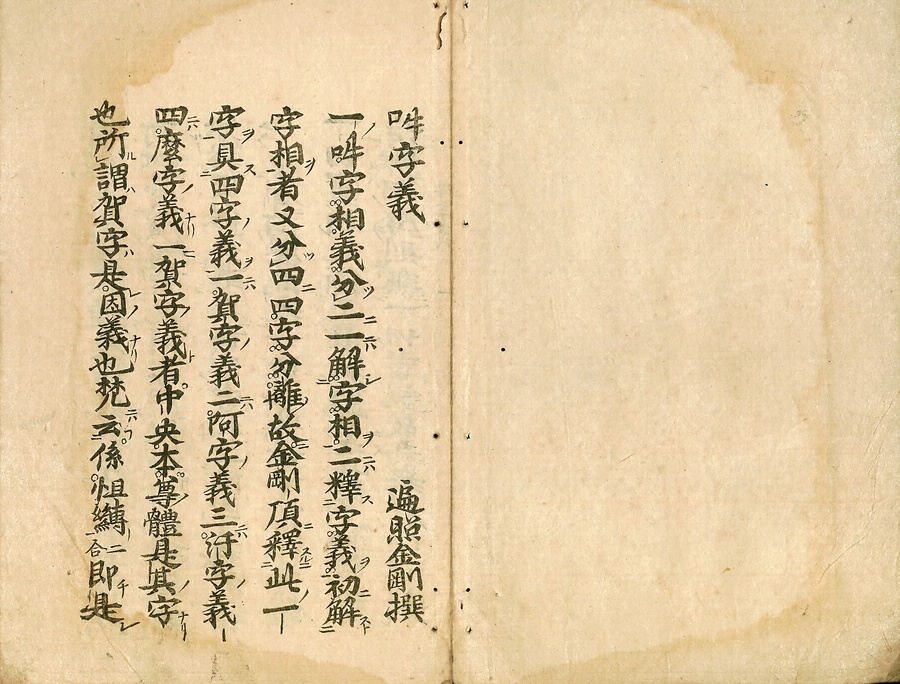 吽字義 遍照金剛撰
一吽字相義分二一解字相二釋字義初解
字相者又分四四字分離故金剛頂釋此一
字具四字義一賀字義二阿字義三汙字義
四麼字義一賀字義者中央本尊體是其字
也所謂賀字是因義也梵云係怛縛二合即是